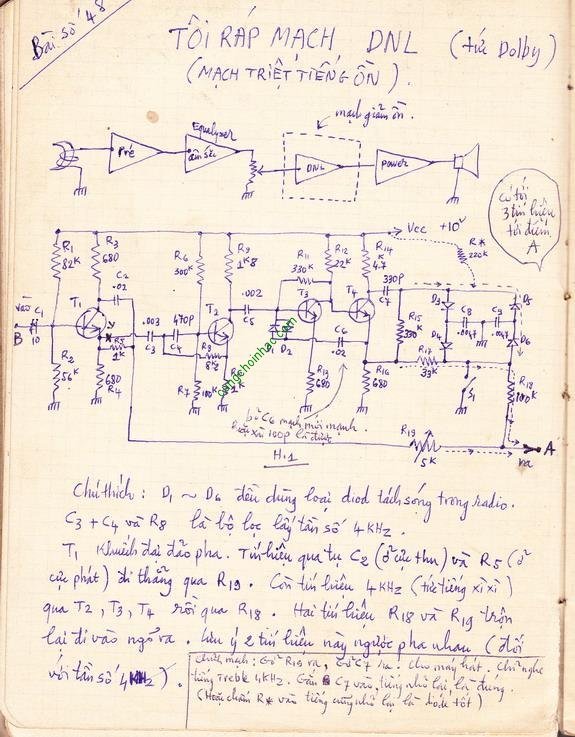 Bài số 48
TÔI RÁP MẠCH DNL (tức Dolby)
(MẠCH TRIỆT TIẾNG ỒN).
mạch giảm ồn.
Equalyzer
Pré
âm sắc
DNL
power
có tới
3 tín hiệu
tới điểm
A
Vcc +10V
R*
220K
R1
82K
R3
680
C2
.02
R6
300K
R9
1K8
R11
330K
R12
22K
R14
4.7
330P
C7
vào
C1
B
10
T1
.003
C3
470P
C4
T2
.002
C5
T3
T4
D1
D2
C6
.02
R15
330K
D3
D4
C8
.0047
C9
.0047
D5
D6
R5
1K
R8
8K2
R2
56K
680
R4
R7
100K
1K
R13
680
R16
680
R17
33K
S1
R18
100K
R19
5K
ra
A
congchoinhac.com
bỏ C6 mạch mới mạnh
100P là được
H.1
Chú thích : D1 ~ D6 đều dùng loại diod tách sóng trong radio.
C3 + C4 và R8 là bộ lọc lấy tần số 4KHz.
T1 Khuếch đại đảo pha. Tín hiệu qua tụ C2 (ở cực thu) và R5 (ở
cực phát) đi thẳng qua R19. Còn tín hiệu 4KHz (tức tiếng xì xì)
qua T2, T3, T4 rồi qua R18. Hai tín hiệu R18 và R19 trộn
lại đi vào ngõ ra. Lưu ý 2 tín hiệu này ngược pha nhau (đối
với tần số 4KHz).
Chỉnh mạch : Gỡ R19 ra, Gỡ C7 ra. Cho máy hát. Chỉ nghe
tiếng Treble 4KHz. Gắn C7 vào, tiếng nhỏ lại, là đúng.
(Hoặc chấm R* vào tiếng cũng nhỏ lại là diode tốt)